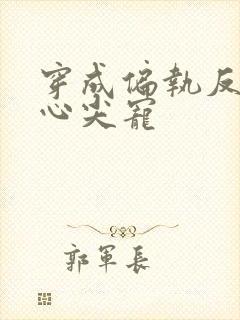 穿成偏執反
心尖寵
郭軍長